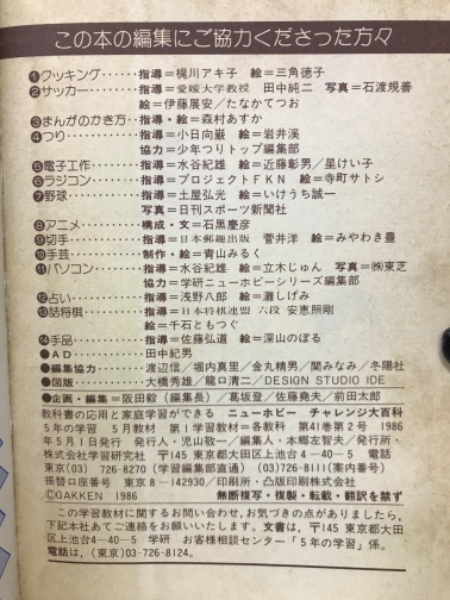 この本の編集にご協力くださった方々
❶クッキング……指導＝梶川アキ子　絵＝三角徳子
❷サッカー………指導＝愛媛大学教授　田中純二　写真＝石渡規善
絵＝伊藤展安／たなかてつお
❸まんがのかき方‥指導・絵＝森村あすか
❹つり……………指導＝小日向巌　絵＝岩井渓
協力＝少年つりトップ編集部
❺電子工作………指導＝水谷紀雄　絵＝近藤彰男／星けい子
❻ラジコン………指導＝プロジェクトFKN　絵＝寺町サトシ
❼野球……………指導＝土屋弘光　絵＝いけうち誠一
写真＝日刊スポーツ新聞社
❽アニメ…………構成・文＝石黒慶彦
❾切手……………指導＝日本郵趣出版　菅井洋　絵＝みやわき豊
❿手芸……………制作・絵＝青山みるく
⓫パソコン………指導＝水谷紀雄　絵＝立木じゅん　写真＝㈱東芝
協力＝学研ニューホビーシリーズ編集部
⓬占い……………指導＝浅野八郎　絵＝灘しげみ
⓭詰将棋…………指導＝日本将棋連盟　六段　安恵照剛
絵＝千石ともつぐ
⓮手品……………指導＝佐藤弘道　絵＝深山のぼる
●AD……………田中紀男
●編集協力………渡辺信／堀内真里／金丸精男／関みなみ／冬陽社
●図版……………大橋秀雄／龍口清二／DESIGN STUDIO IDE
●企画・編集＝阪田毅（編集長）／葛坂登／佐藤堯夫／前田太郎
教科書の応用と家庭学習ができる　ニューホビー　チャレンジ大百科
5年の学習　5月教材　第1学習教材＝各教科　第41巻第2号　1986
年5月1日発行　発行人・児山敬一／編集人・本郷左智夫／発行所・
株式会社学習研究社　〒145　東京都大田区上池台4－40－5　電話
東京(03)　726-8270（学習編集部直通）(03)726-8111（案内番号）
振替口座番号　東京8－142930／印刷所・凸版印刷株式会社
©GAKKEN　1986　無断複写・複製・転載・翻訳を禁ず
この学習教材に関するお問い合わせ,お気づきの点がありましたら,
下記本社あてご連絡をお願いいたします。文書は,〒145 東京都大田
区上池台4-40-5　学研　お客様相談センター「5年の学習」係。
電話は,(東京)03-726-8124。